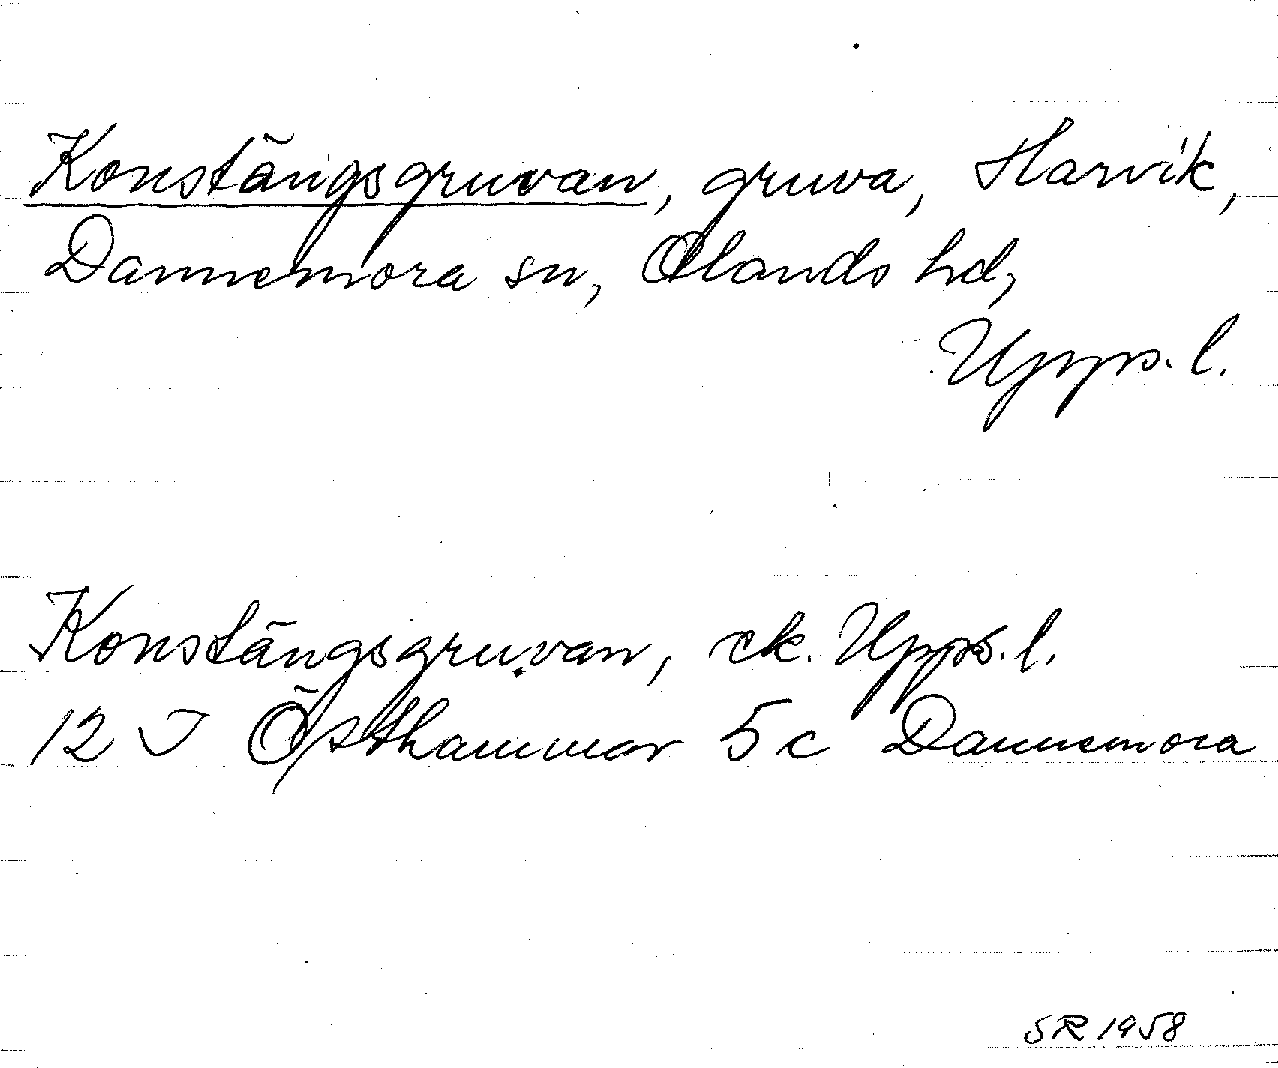 Konstängsgruvan, gruva, Harvik,
Dannemora sn, Olands hd,
Upps. l.
Konstängsgruvan, ek. Upps. l.
12 I Östhammar 5 c Dannemora
SR 1958